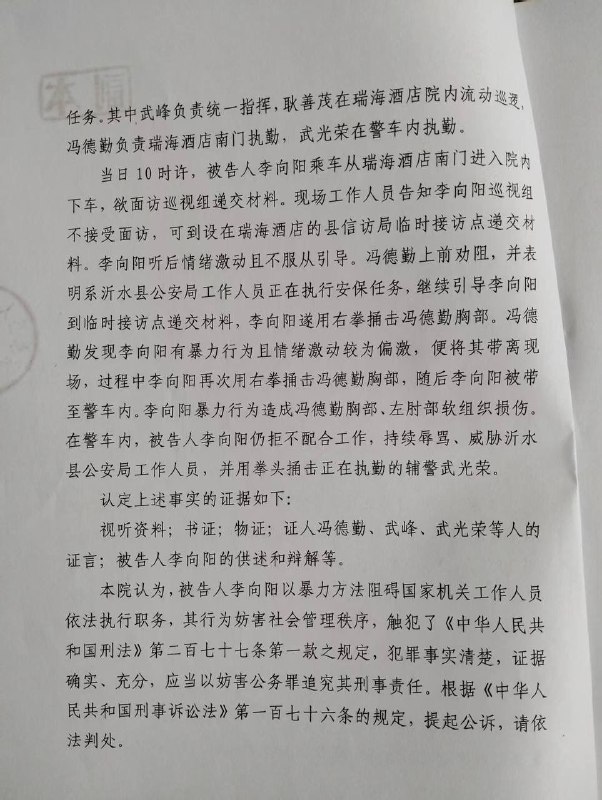 副本
任务。其中武峰负责统一指挥，耿善茂在瑞海酒店院内流动巡逻，
冯德勤负责瑞海酒店南门执勤，武光荣在警车内执勤。
当日10时许，被告人李向阳乘车从瑞海酒店南门进入院内
下车，欲面访巡视组递交材料。现场工作人员告知李向阳巡视组
不接受面访，可到设在瑞海酒店的县信访局临时接访点递交材
料。李向阳听后情绪激动且不服从引导。冯德勤上前劝阻，并表
明系沂水县公安局工作人员正在执行安保任务，继续引导李向阳
到临时接访点递交材料，李向阳遂用右拳捅击冯德勤胸部。冯德
勤发现李向阳有暴力行为且情绪激动较为偏激，便将其带离现
场，过程中李向阳再次用右拳捅击冯德勤胸部，随后李向阳被带
至警车内。李向阳暴力行为造成冯德勤胸部、左肘部软组织损伤。
在警车内，被告人李向阳仍拒不配合工作，持续辱骂、威胁沂水
县公安局工作人员，并用拳头捅击正在执勤的辅警武光荣。
认定上述事实的证据如下：
视听资料；书证；物证；证人冯德勤、武峰、武光荣等人的
证言；被告人李向阳的供述和辩解等。
本院认为，被告人李向阳以暴力方法阻碍国家机关工作人员
依法执行职务，其行为妨害社会管理秩序，触犯了《中华人民共
和国刑法》第二百七十七条第一款之规定，犯罪事实清楚，证据
确实、充分，应当以妨害公务罪追究其刑事责任。根据《中华人
民共和国刑事诉讼法》第一百七十六条的规定，提起公诉，请依
法判处。